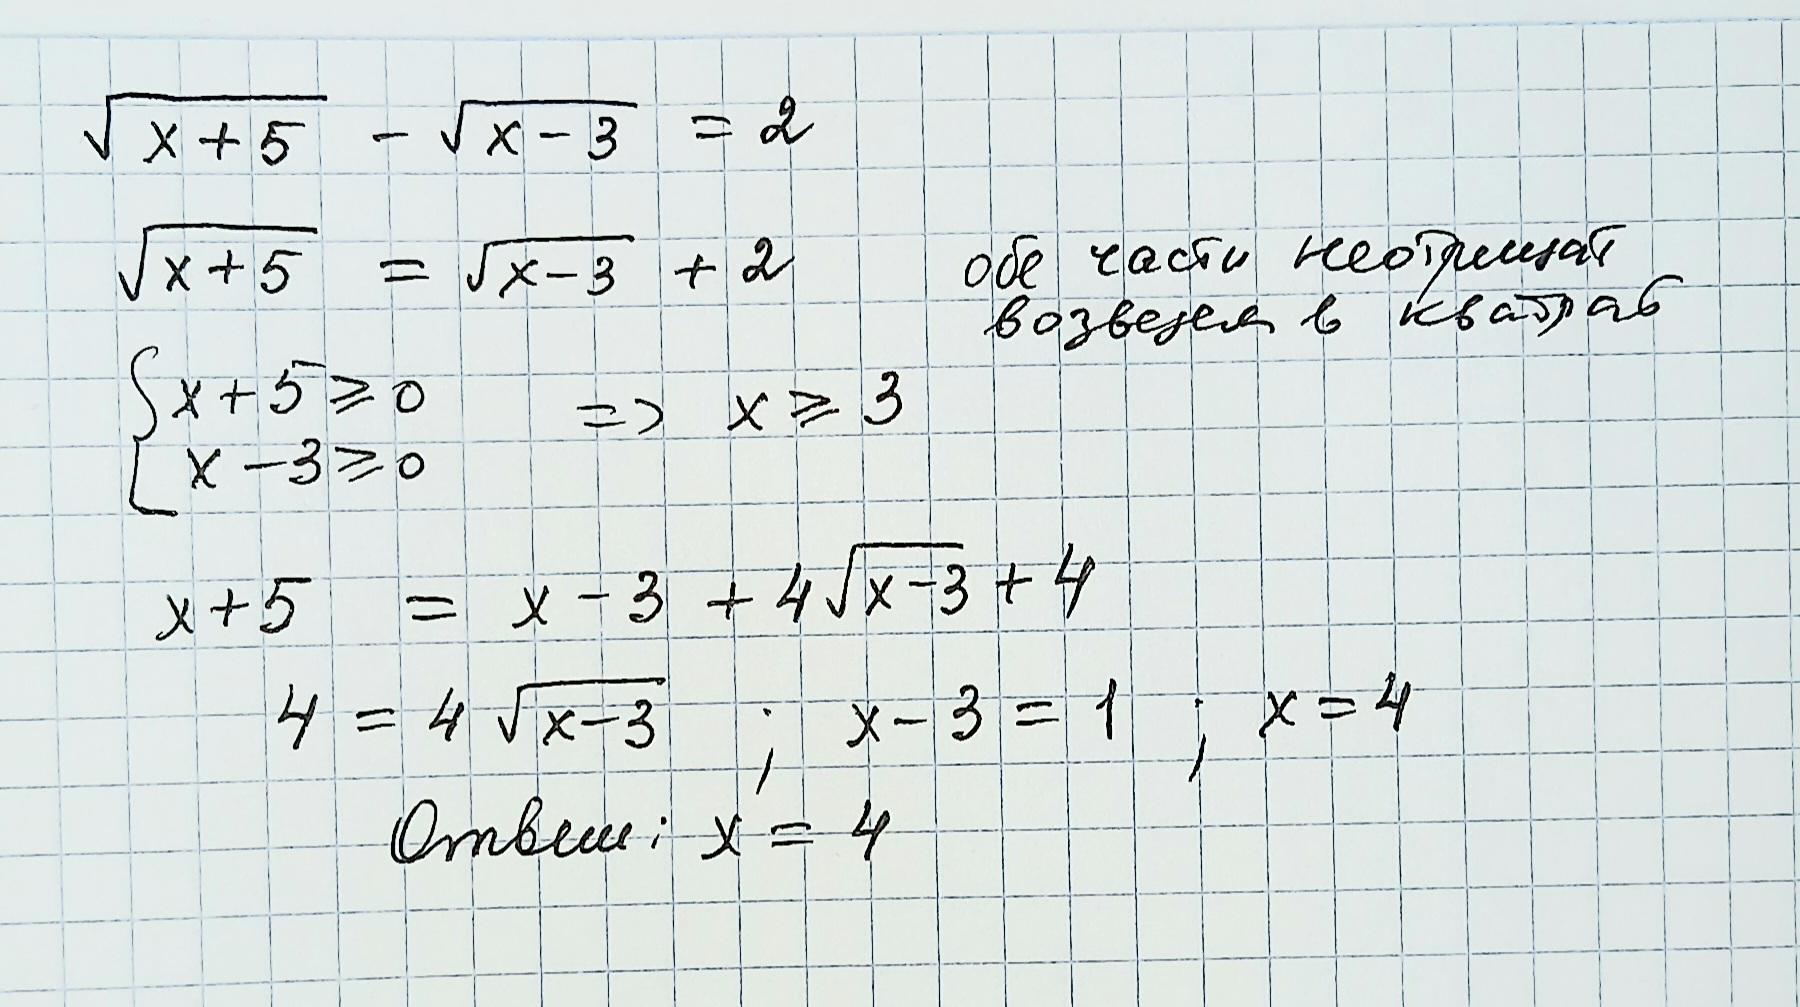 √(x+5) - √(x-3) = 2
√(x+5) = √(x-3) + 2 обе части неотрицат
возведем в квадрат
{ x+5 ≥ 0 => x ≥ 3
x-3 ≥ 0
x+5 = x-3 + 4√(x-3) + 4
4 = 4√(x-3) ; x-3 = 1 ; x = 4
Ответ: x = 4